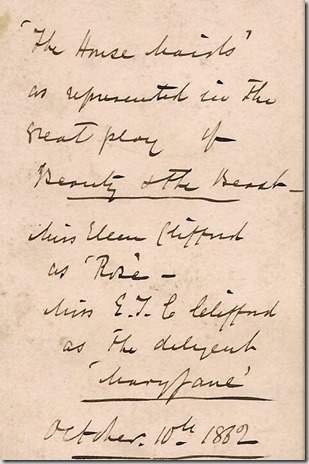 "The House Maids"
as represented in the
great play of
Beauty & the Beast -
Miss Eleen Clifford
as 'Rose' -
Miss E. T. C Clifford
as the diligent
'Mary Jane'
October. 10th 1862